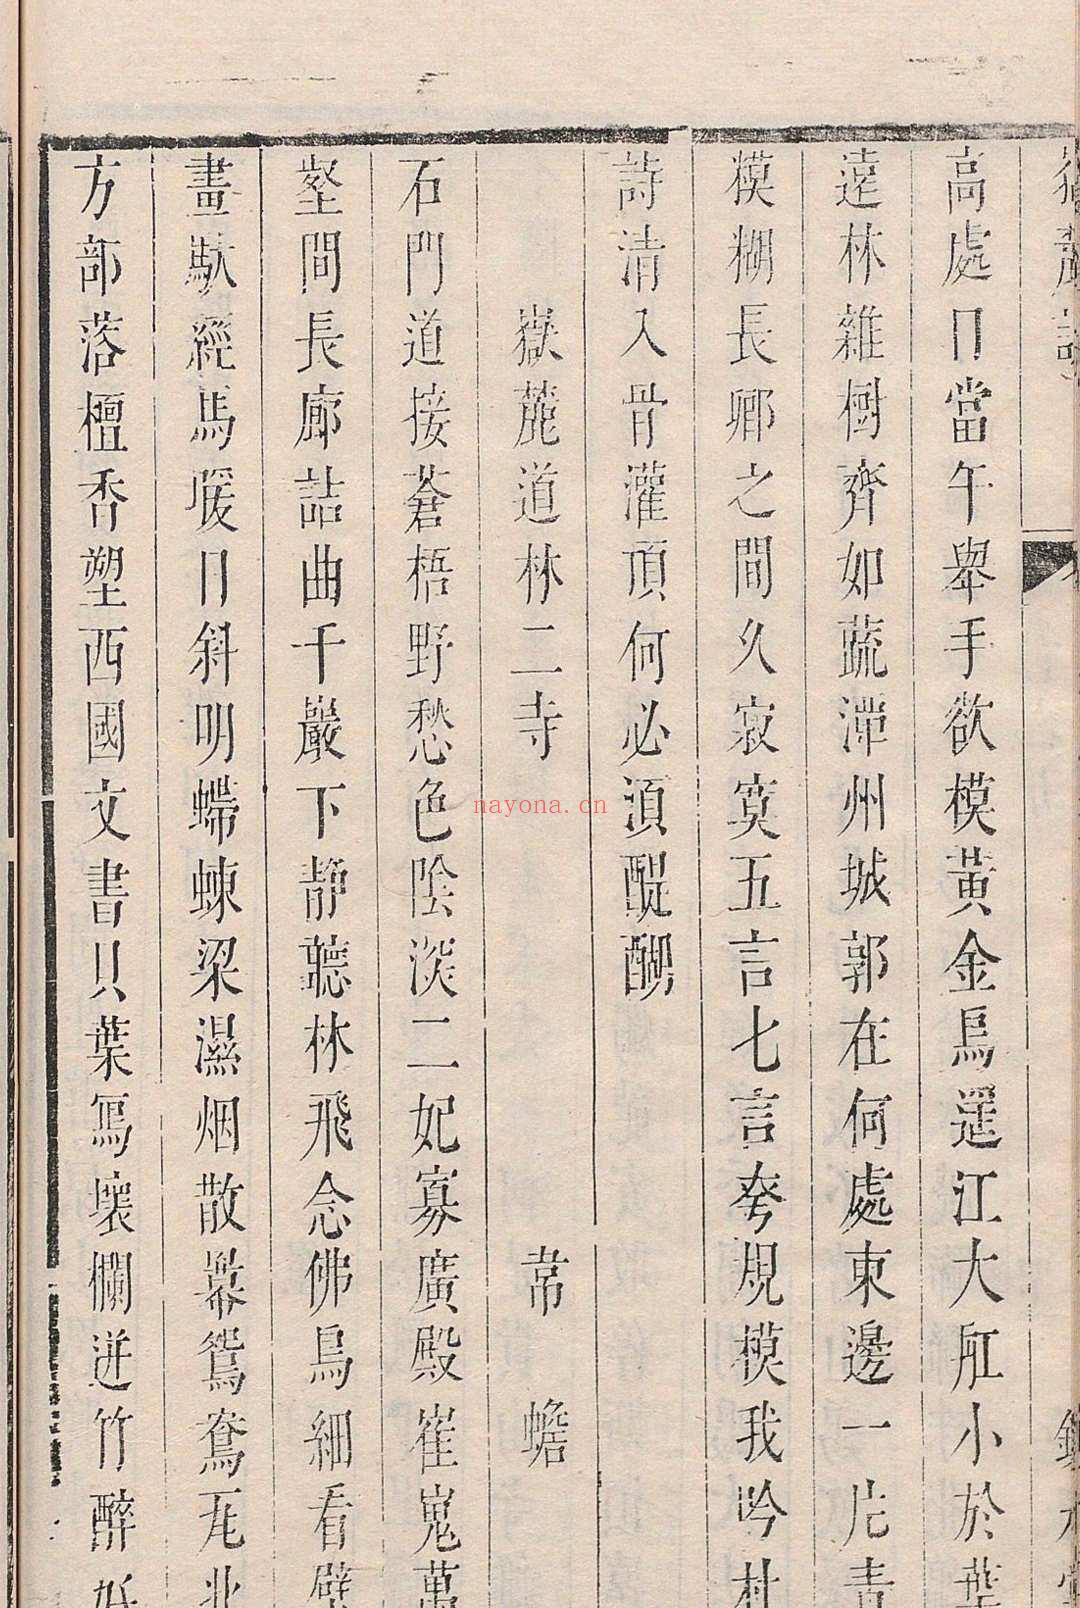 高處日當午舉手欲模黃金烏遥江大舡小於葉
遠林雜樹齊如蔬潭州城郭在何處東邊一片青
模糊長卿之間久寂寞五言七言夸規模我吟杜
詩清入骨灌頂何必湏醍醐
嶽麓道林二寺 韋蟾
石門道接蒼梧野愁色陰淡二妃寡廣殿崔嵬萬
壑間長廊詰曲千巖下静聽林飛念佛鳥細看壁
畫馱經馬暖日斜明䗖蝀梁濕烟散羃鴛鴦瓦北
方部落檀香塑西國文書貝葉寫壞欄迸竹醉
nayona.cn